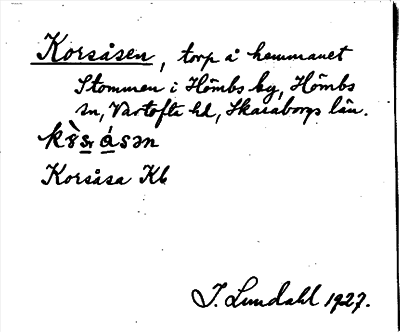 Korsåsen, torp å hemmanet
Stommen i Hömbs by, Hömbs
sn, Vartofta hd, Skaraborgs län.
Korsåsa Kb
I. Lundahl 1927.